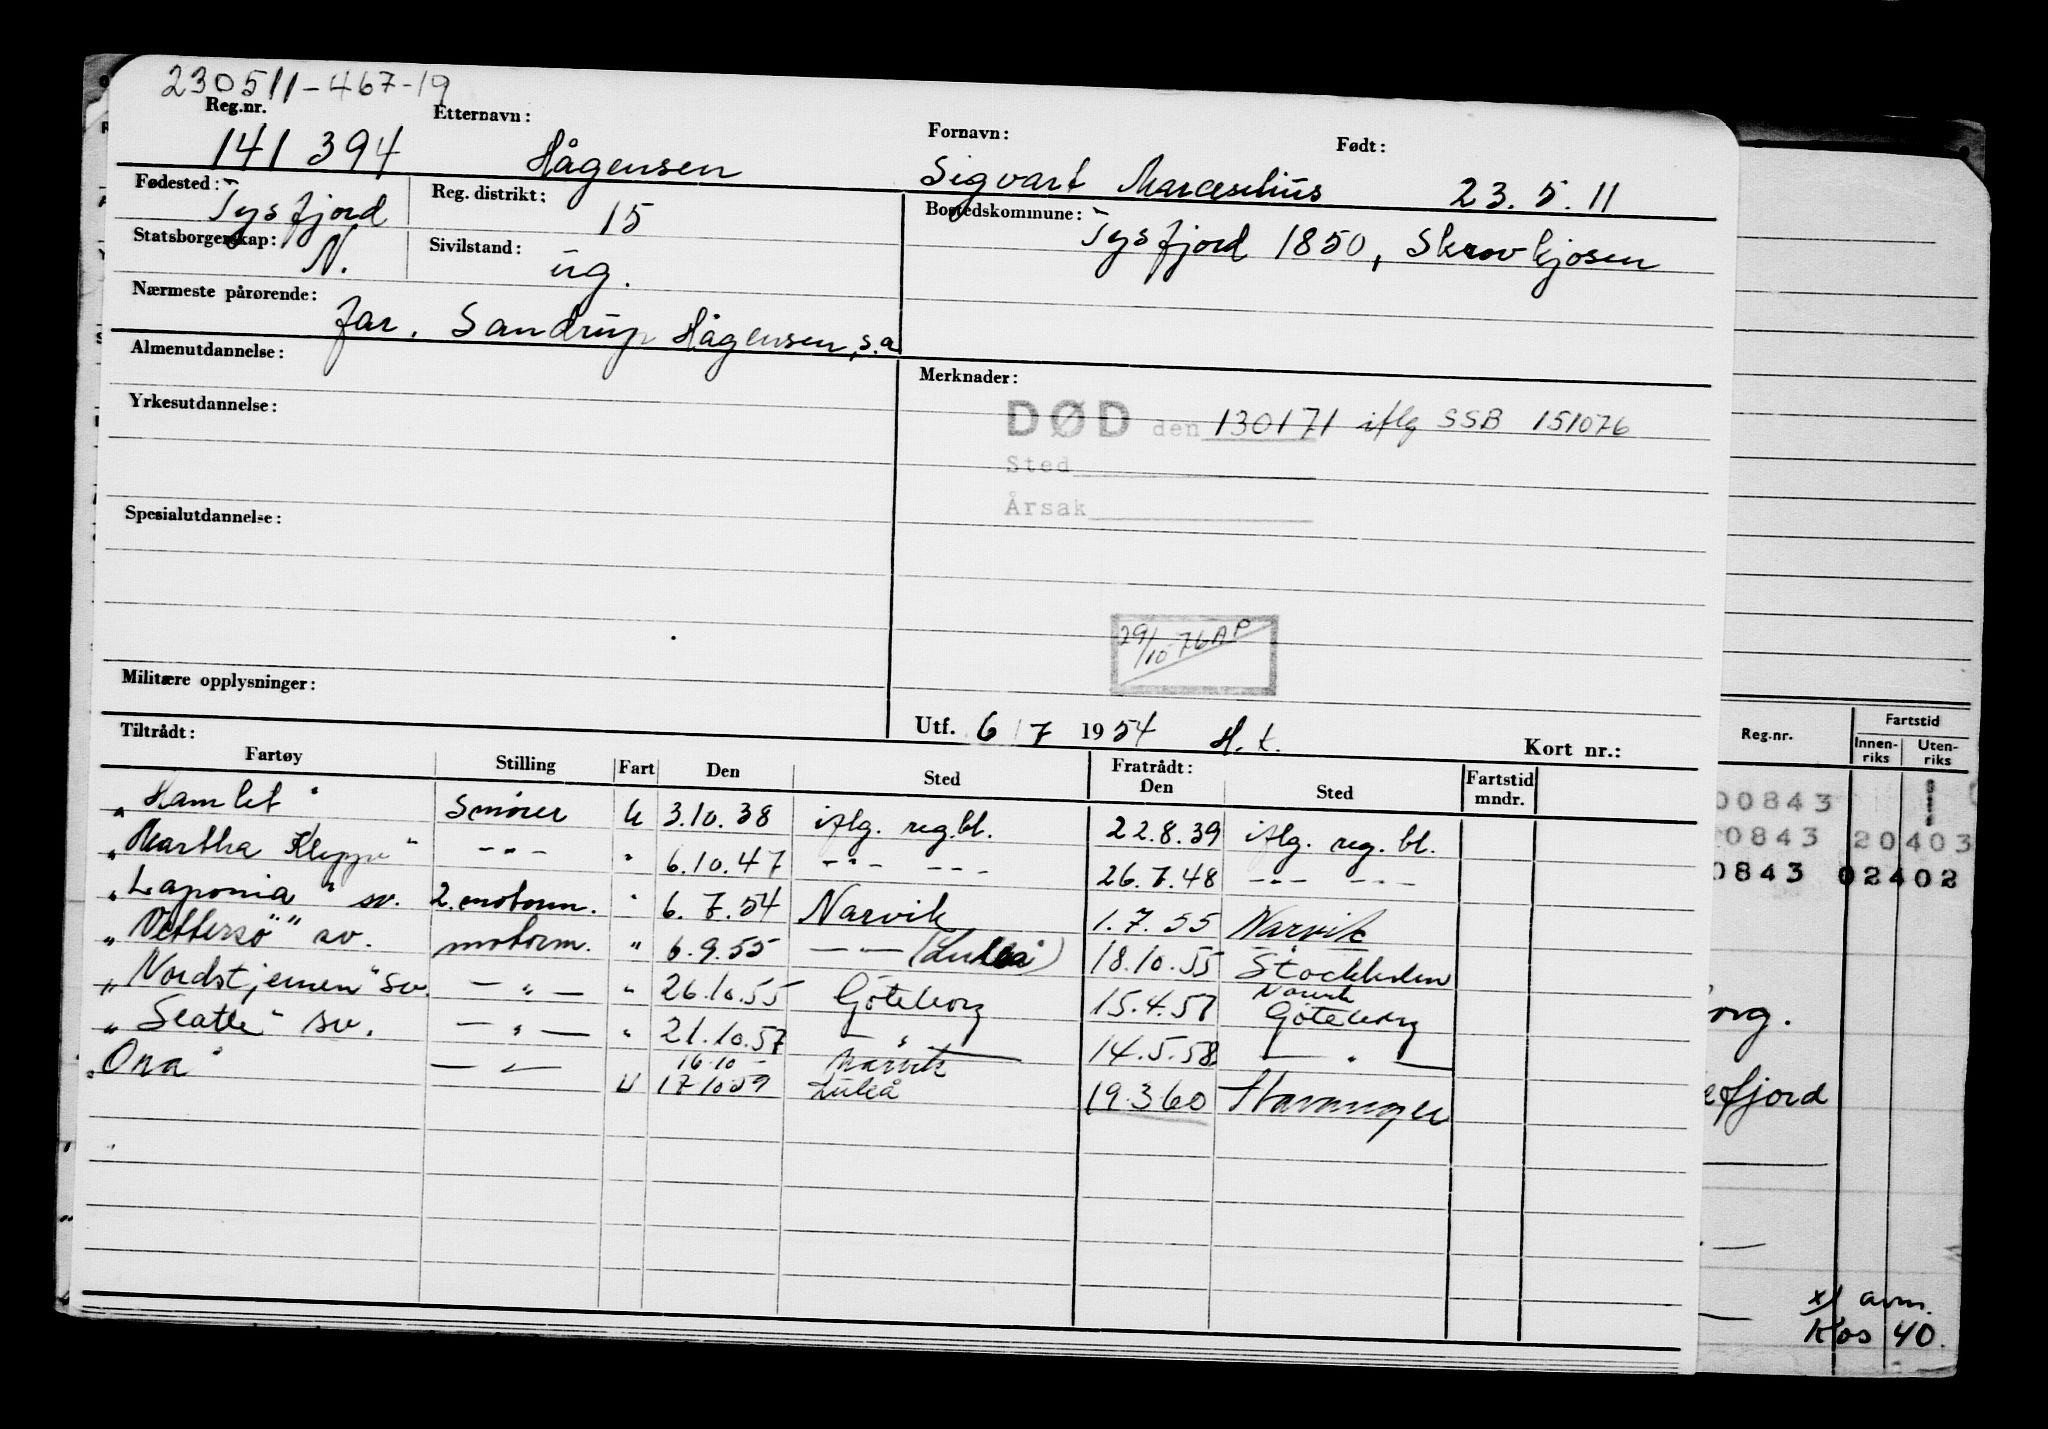 230511-467-19
Reg.nr. Etternavn: Fornavn: Født:
141 394 Hågensen Sigvart Marcselius 23.5.11
Fødested: Tysfjord Reg. distrikt: 15 Bostedskommune: Tysfjord 1850, Skrovkjosen
Statsborgerskap: N. Sivilstand: ug.
Nærmeste pårørende: far. Sandrup Hågensen, s.a
Almenutdannelse: Merknader:
Yrkesutdannelse: DØD den 130171 iflg SSB 151076
Sted
Årsak
Spesialutdannelse:
29/10-76 AP
Militære opplysninger:
Utf. 6/7 1954 H.t. Kort nr.:
Tiltrådt: Fratrådt:
Fartøy Stilling Fart Den Sted Den Sted Fartstid mndr.
"Hamlet" Smører U 3.10.38 iflg. reg.bl. 22.8.39 iflg. reg. bl.
"Martha Kleppe" -"- " 6.10.47 -"- -"- 26.7.48 -"- -"-
"Laponia" sv. 2. motorm. " 6.7.54 Narvik 1.7.55 Narvik
"Vettersö" sv. motorm. " 6.9.55 -"- (Luleå) 18.10.55 Stockholm
"Nordstjernen" sv. -"- " 26.10.55 Göteborg 15.4.57 Narvik Göteborg
"Seatle" sv. -"- " 21.10.57 -"- 14.5.58 -"-
16.10 Narvik
"Ora" -"- U 17.10.59 Luleå 19.3.60 Stavanger
Reg.nr. Fartstid
Innenriks Utenriks
00843
0843 20403
0843 02402
org.
efjord
x) avm.
Kos 40.